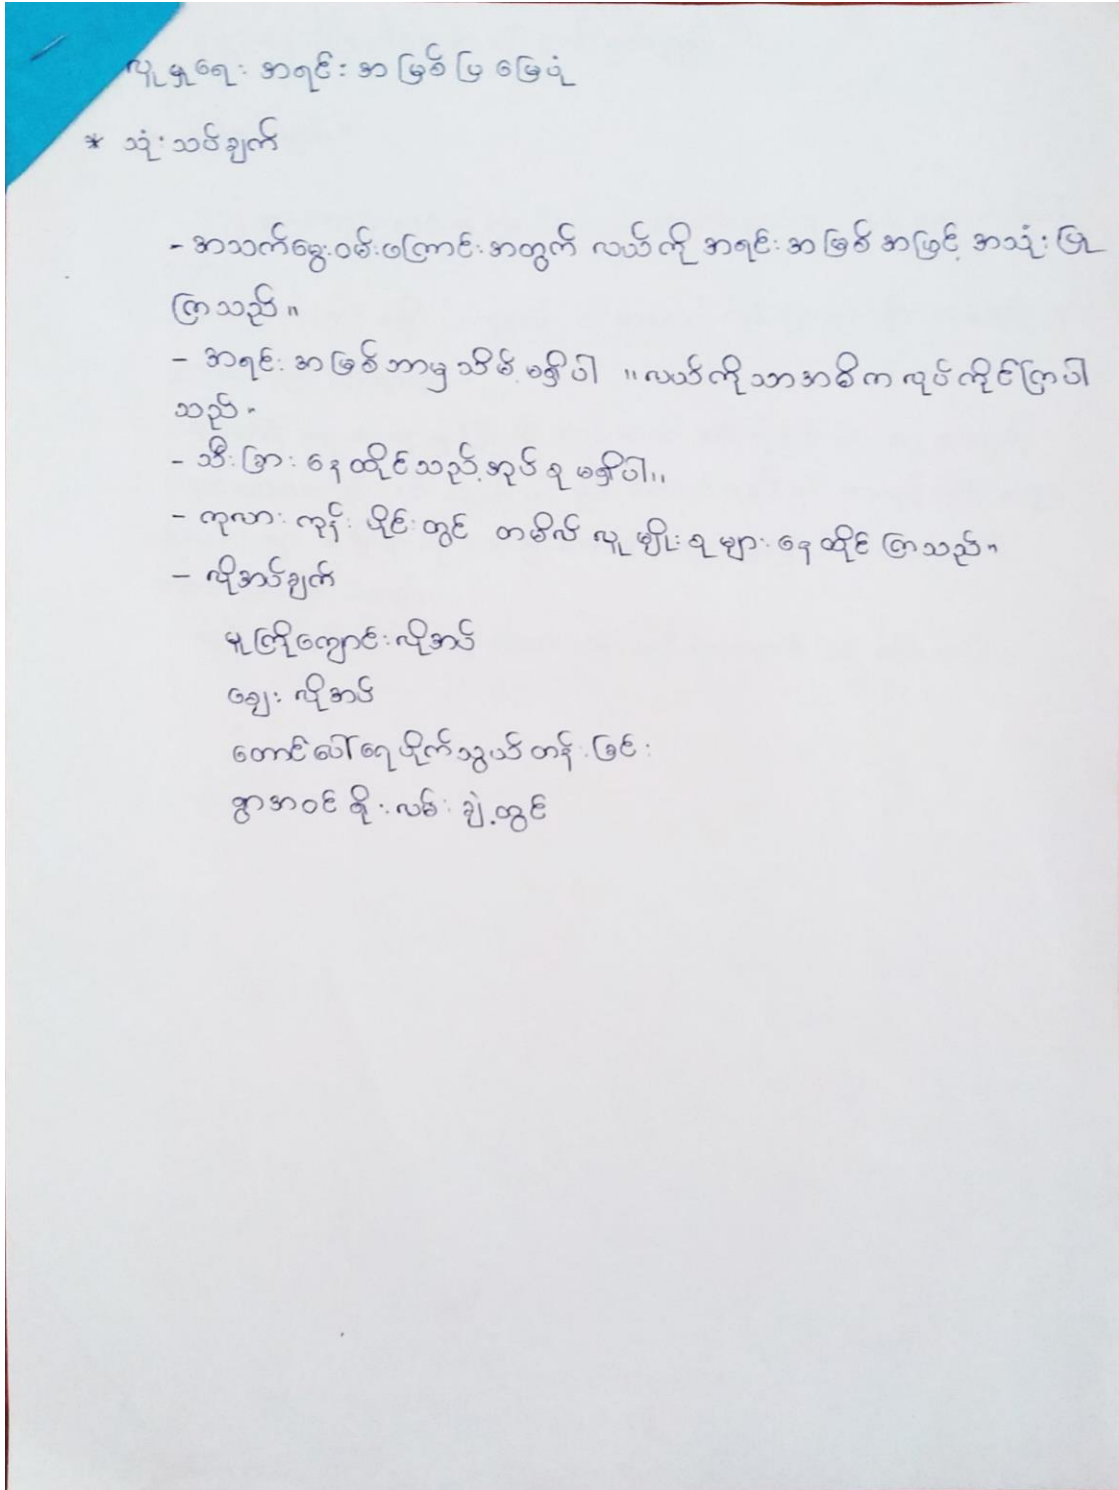 လူမှုရေး အရင်းအမြစ်ပြ မြေပုံ
* သုံးသပ်ချက်
- အသက်မွေးဝမ်းကြောင်းအတွက် လယ်ကို အရင်းအမြစ်အဖြင့် အသုံးပြု
ကြသည်။
- အရင်းအမြစ်ဘာမှ သိမ်မရှိပါ ။လယ်ကိုသာအဓိကလုပ်ကိုင်ကြပါ
သည်။
- သီးခြားနေထိုင်သည့်အုပ်စုမရှိပါ။
- ကုလားကုန်းပိုင်းတွင် တမိလ်လူမျိုးစုများနေထိုင်ကြသည်။
- လိုအပ်ချက်
မူကြိုကျောင်းလိုအပ်
ချေးလိုအပ်
တောင်ပေါ်ရေပိုက်သွယ်တန်းခြင်း
ရွာအဝင်ရိုးလမ်းချဲ့ထွင်